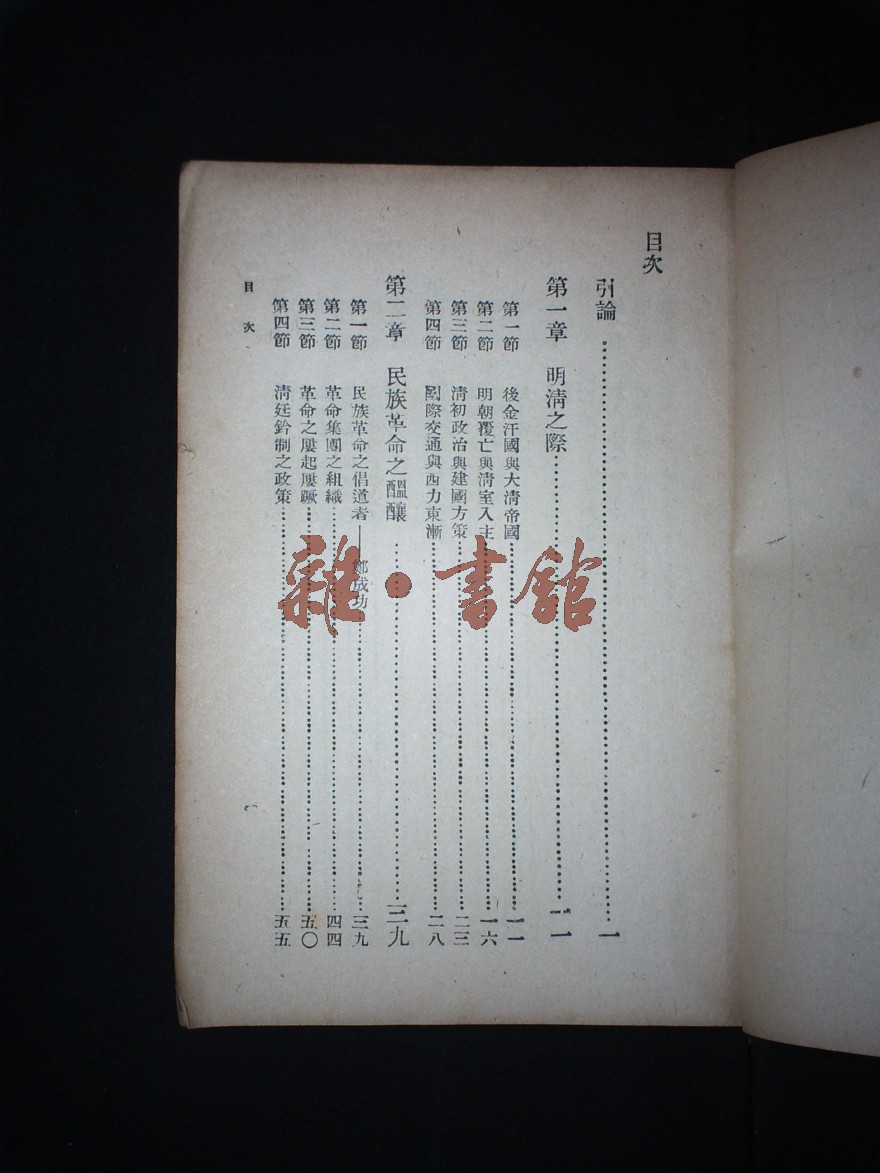 目次
引論……一
第一章　明清之際……一一
第一節　後金汗國與大清帝國……一一
第二節　明朝覆亡與清室入主……一六
第三節　清初政治與建國方策……二三
第四節　國際交通與西力東漸……二八
第二章　民族革命之醞釀……三九
第一節　民族革命之倡道者——鄭成功……三九
第二節　革命集團之組織……四四
第三節　革命之屢起屢蹶……五〇
第四節　清廷鈐制之政策……五五
目次
雜·書館